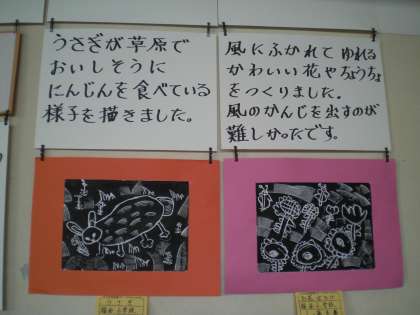 うさぎが草原で
おいしそうに
にんじんを食べている
様子を描きました。
風にふかれて ゆれる
かわいい花やちょうちょ
をつくりました。
風のかんじを出すのが
難しかったです。
うさぎ